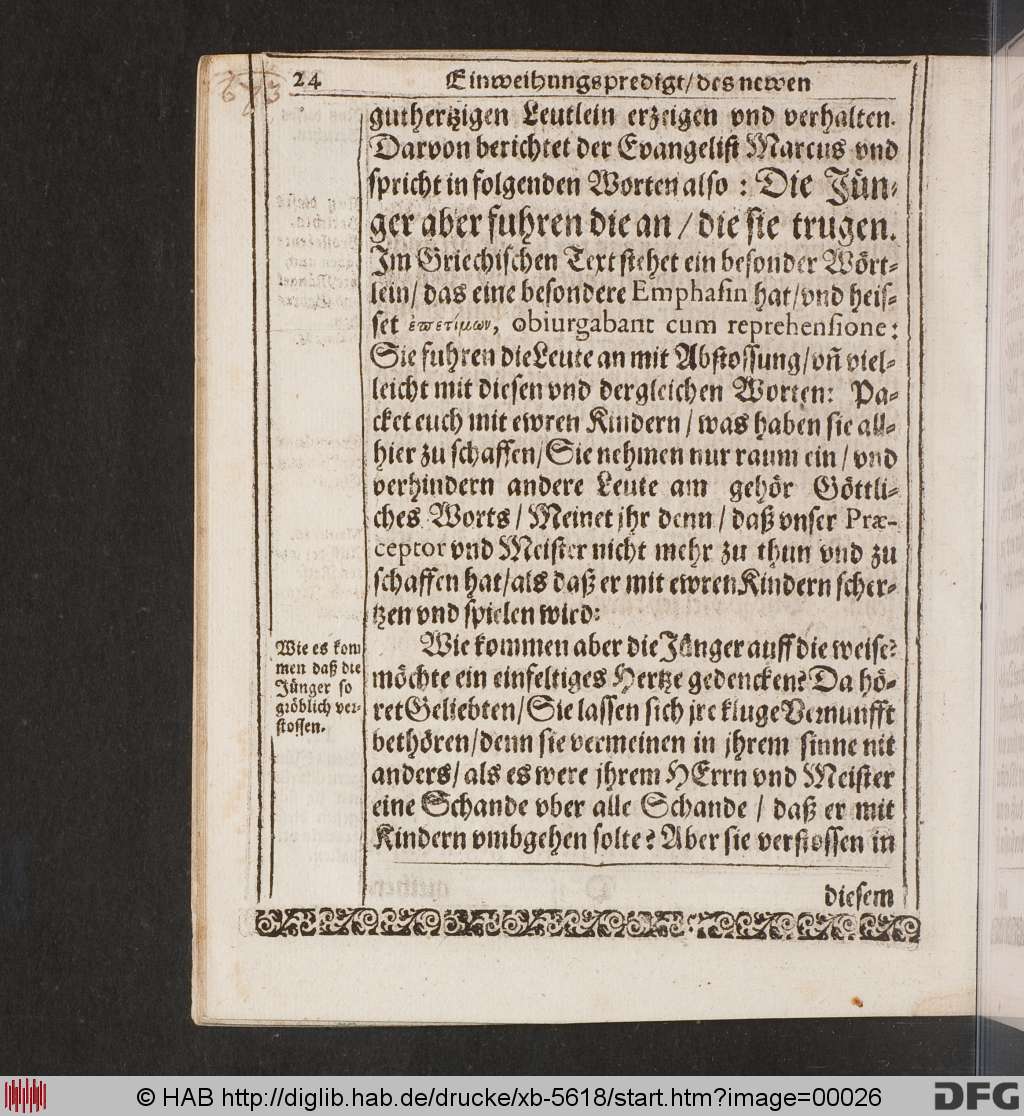 24 Einweihungspredigt/ des newen
guthertzigen Leutlein erzeigen vnd verhalten.
Darvon berichtet der Evangelist Marcus vnd
spricht in folgenden Worten also : Die Jün-
ger aber fuhren die an / die sie trugen.
Im Griechischen Text stehet ein besonder Wört-
lein/ das eine besondere Emphasin hat/ vnd heis-
set ἐπετίμων, obiurgabant cum reprehensione:
Sie fuhren die Leute an mit Abstossung/ vñ viel-
leicht mit diesen vnd dergleichen Worten: Pa-
cket euch mit ewren Kindern / was haben sie all-
hier zu schaffen/ Sie nehmen nur raum ein / vnd
verhindern andere Leute am gehör Göttli-
ches Worts / Meinet jhr denn / daß vnser Præ-
ceptor vnd Meister nicht mehr zu thun vnd zu
schaffen hat/ als daß er mit ewren Kindern scher-
tzen vnd spielen wird:
Wie es kom
men daß die
Jünger so
gröblich ver-
stossen.
Wie kommen aber die Jünger auff die weise?
möchte ein einfeltiges Hertze gedencken? Da hö-
ret Geliebten/ Sie lassen sich jre kluge Vernunfft
bethören/ denn sie vermeinen in jhrem sinne nit
anders/ als es were jhrem HErrn vnd Meister
eine Schande vber alle Schande / daß er mit
Kindern vmbgehen solte? Aber sie verstossen in
diesem
© HAB http://diglib.hab.de/drucke/xb-5618/start.htm?image=00026
DFG